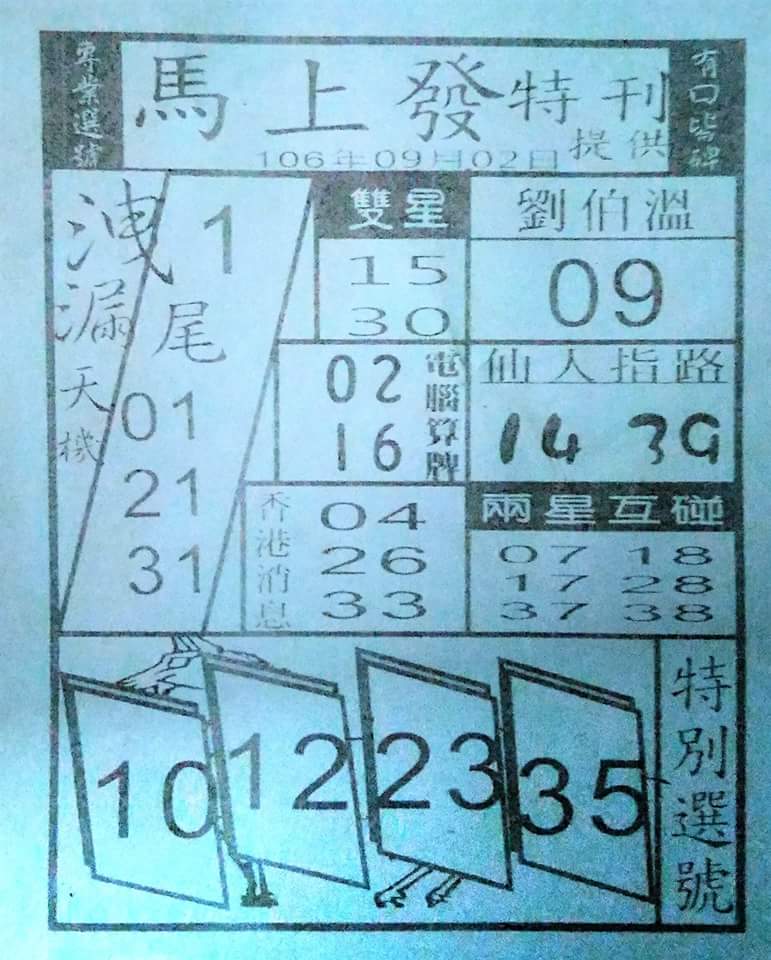 專業選號
馬上發特刊
提供
106年09月02日
有口皆碑
洩漏天機
1
尾
01
21
31
雙星
15
30
劉伯溫
09
02
16
電腦算牌
仙人指路
14 39
香港消息
04
26
33
兩星互碰
07 18
17 28
37 38
10 12 23 35
特別選號